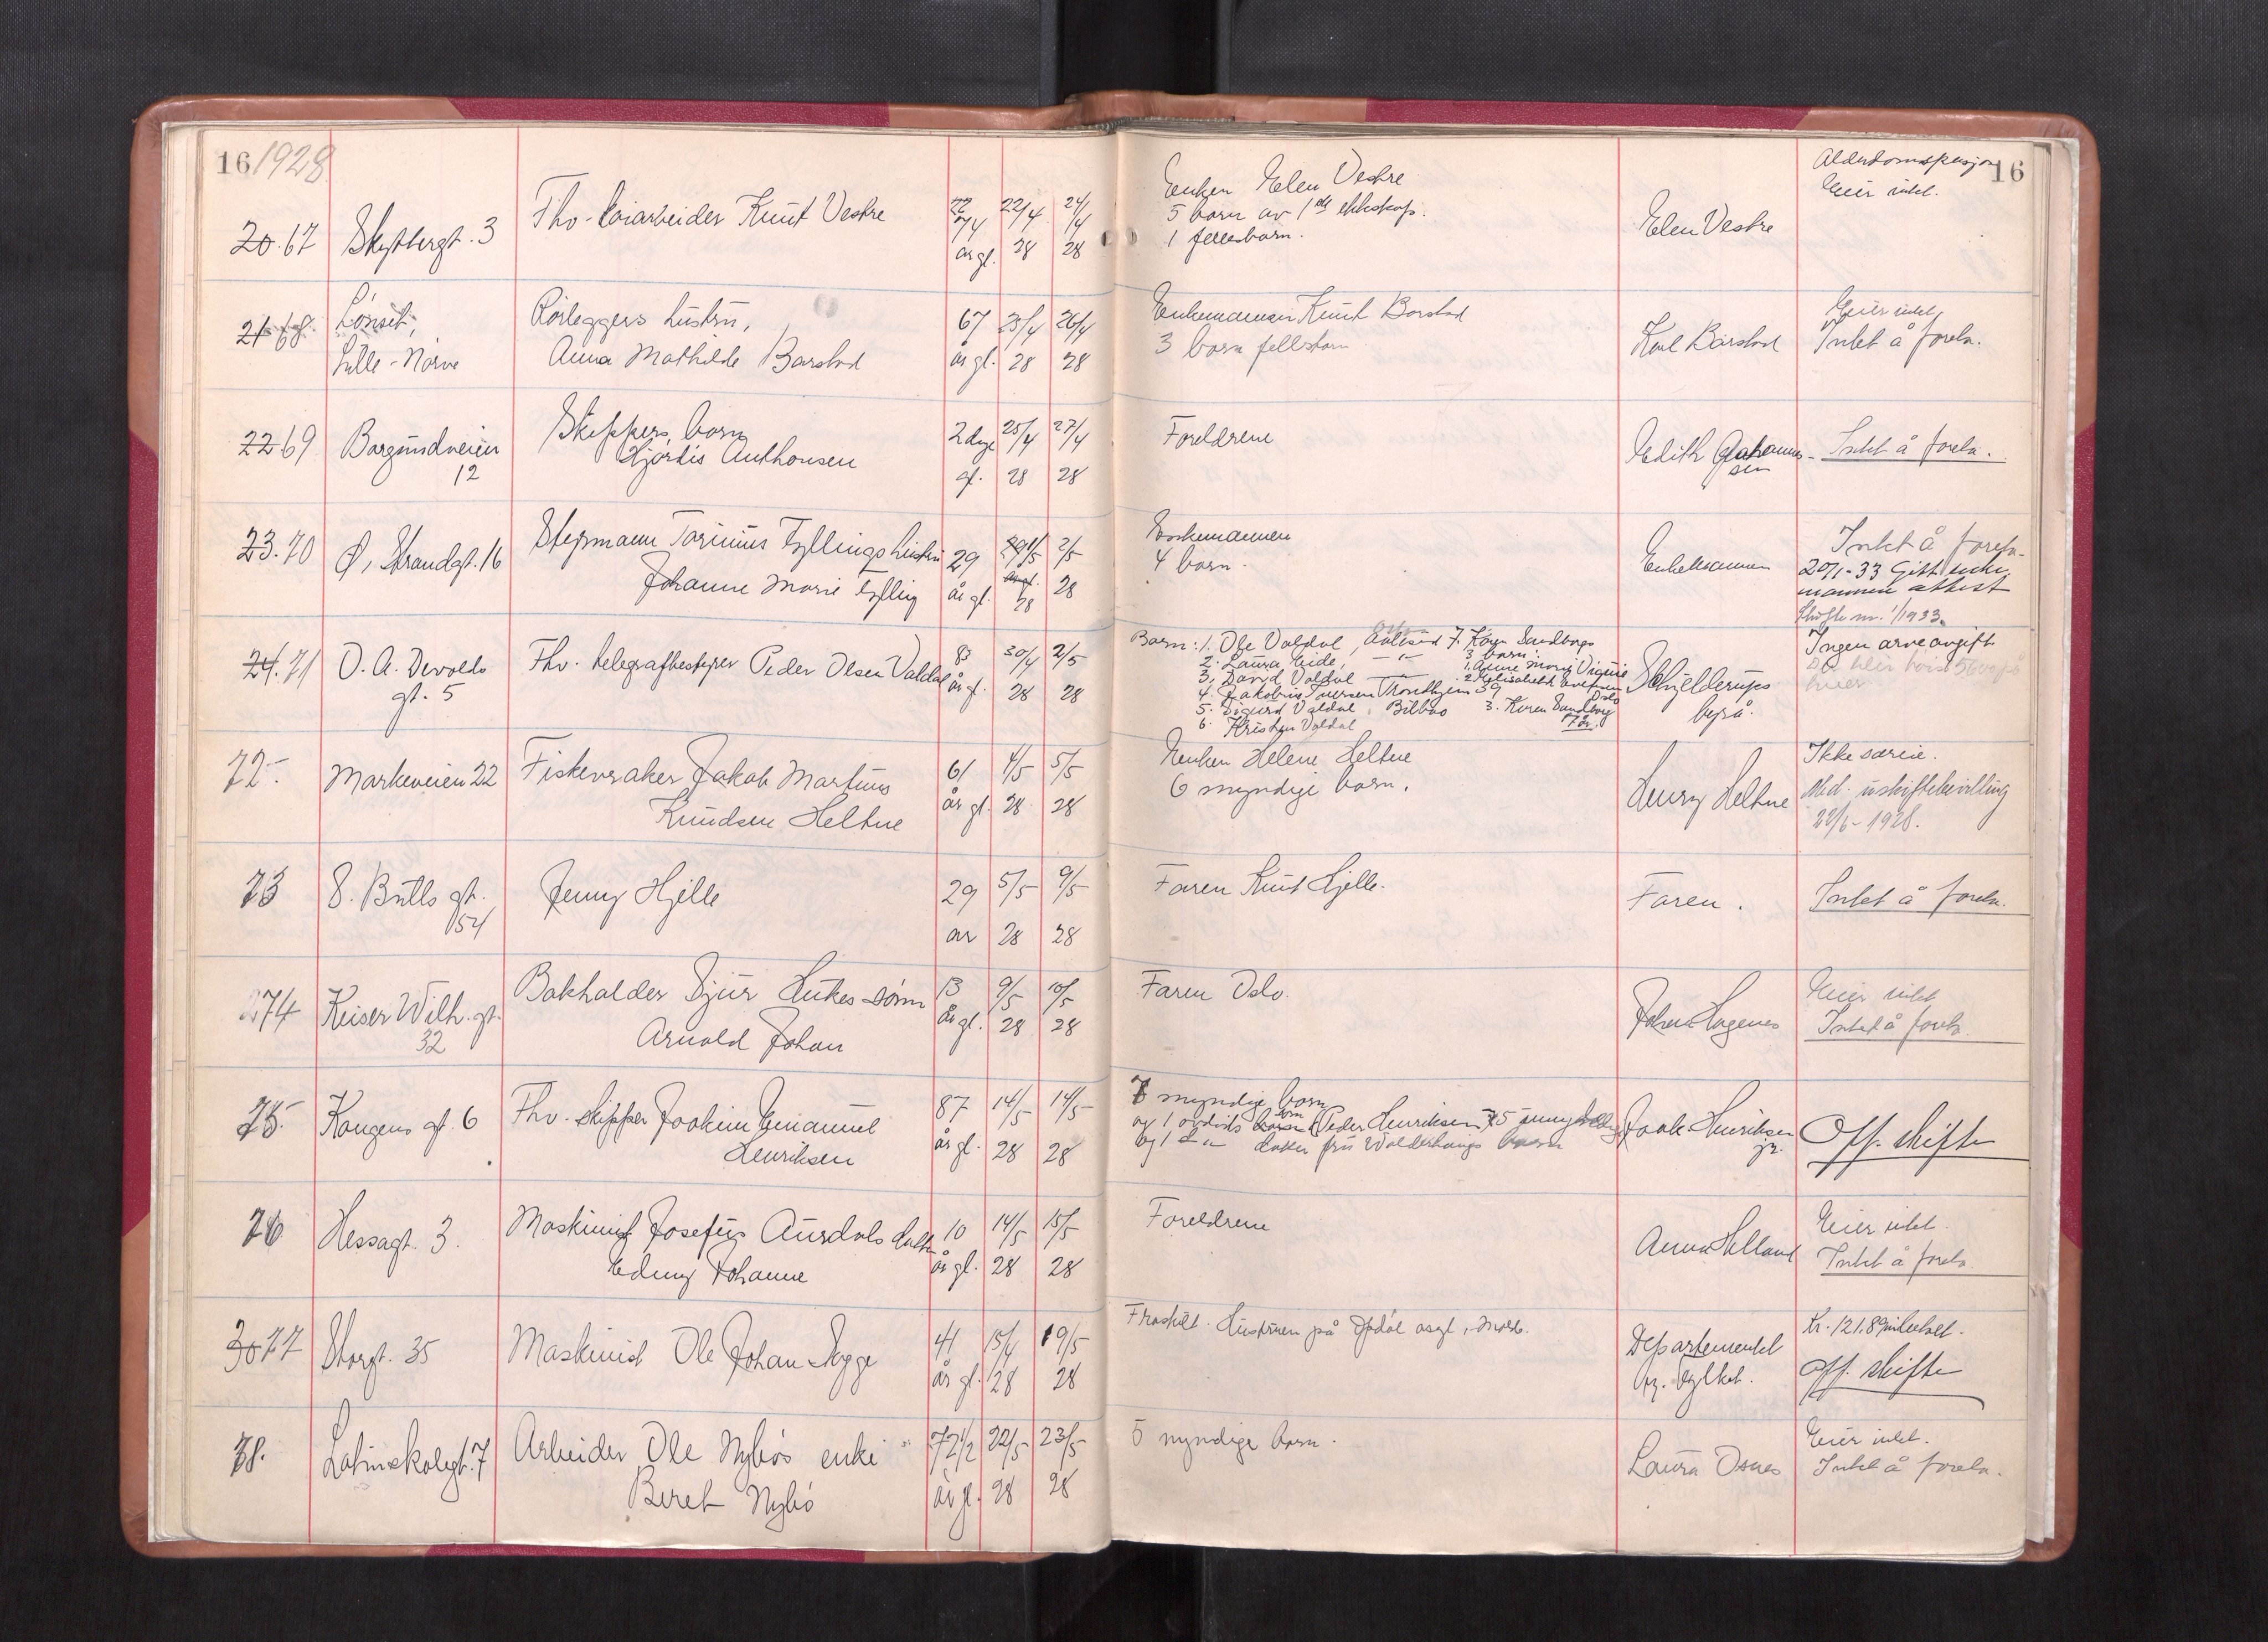 16 1928
20. 67 Skytterqt. 3 Fhv. kaiarbeider Knut Vestre 74 22/4 24/4
år gl. 28 28
Enken Elen Vestre
5 barn av 1ste ekteskap.
1 fellesbarn.
Elen Vestre
Alderdomspensjon 16
Eier intet.
21 68 Lønset,
Lille-Nørve
Rørleggers hustru,
Anna Mathilde Barstad
67 25/4 26/4
år gl. 28 28
Enkemannen Knut Barstad
3 barn fellesbarn
Karl Barstad
Eier intet
Intet å foreta.
22 69 Borgundveien
12
Skippers barn
Hjørdis Anthonsen
2 dage 25/4 27/4
gl. 28 28
Foreldrene
Edith Johannes-
sen
Intet å foreta.
23. 70 Ø. Strandgt. 16
Styrmann Torinus Fyllings hustru
Johanne Marie Fylling
29 1/5 2/5
år gl. 28 28
Enkemannen
4 barn.
Enkemannen
Intet å foreta.
20/1-33 Gitt enke-
mannen attest
Skifte nr. 1/1933.
24. 71 O. A. Devolds
gt. 5
Fhv. telegrafbestyrer Peder Olsen Valdal
83 30/4 2/5
år gl. 28 28
Barn: 1. Ole Valdal, Aalesund 7. Karen Sandborgs
2. Laura Eide, —"— 3 barn:
3. David Valdal —"— 1. Anne Marie
4. Jakobine Iversen Trondhjem 39 2. Elisabeth
Oslo
5. Sigurd Valdal, Bilbao 3. Karen Sandborg
6. Kristen Valdal 17 år.
Schjelderups
byrå.
Ingen arveavgift
72. Markeveien 22
Fiskevraker Jakob Martinus
Knudsen Heltne
61 4/5 5/5
år gl. 28 28
Enken Helene Heltne
6 myndige barn.
Henry Heltne
Ikke særeie.
Med. uskiftebevilling
22/6-1928.
73 S. Bulls gt.
54
Jenny Hjelle
29 5/5 9/5
år 28 28
Faren Knut Hjelle.
Faren.
Intet å foreta.
74 Keiser Wilh. gt.
32
Bakhalder Sjur Hukes sønn
Arnold Johan
13 9/5 10/5
år gl. 28 28
Faren Oslo.
Johan Hagenes
Eier intet
Intet å foreta.
75. Kongens gt. 6
Fhv. skipper Joakim Emanuel
Henriksen
87 14/5 14/5
år gl. 28 28
7 myndige barn
og 1 avdøds sønn (Peder Henriksen) 5 umyndige
og 1 —"— datter fru Walderhaugs barn
Joak. Henriksen
jr.
Off. skifte
76 Hessagt. 3.
Maskinist Josefus Aursdals datter
Edny Johanne
10 14/5 15/5
år gl. 28 28
Foreldrene
Anna Helland
Eier intet.
Intet å foreta
30 77 Storgt. 35
Maskinist Ole Johan Mygge
41 15/4 19/5
år gl. 28 28
Fraskilt. Hustruen på Opdøl asyl, Molde.
Departementet
gj. Fylket.
Kr. 121.89 innbetalt.
Off. skifte
78. Latinskolegt. 7
Arbeider Ole Nybøs enke
Beret Nybø
72 1/2 22/5 23/5
år gl. 28 28
5 myndige barn.
Laura Osnes
Eier intet.
Intet å foreta.